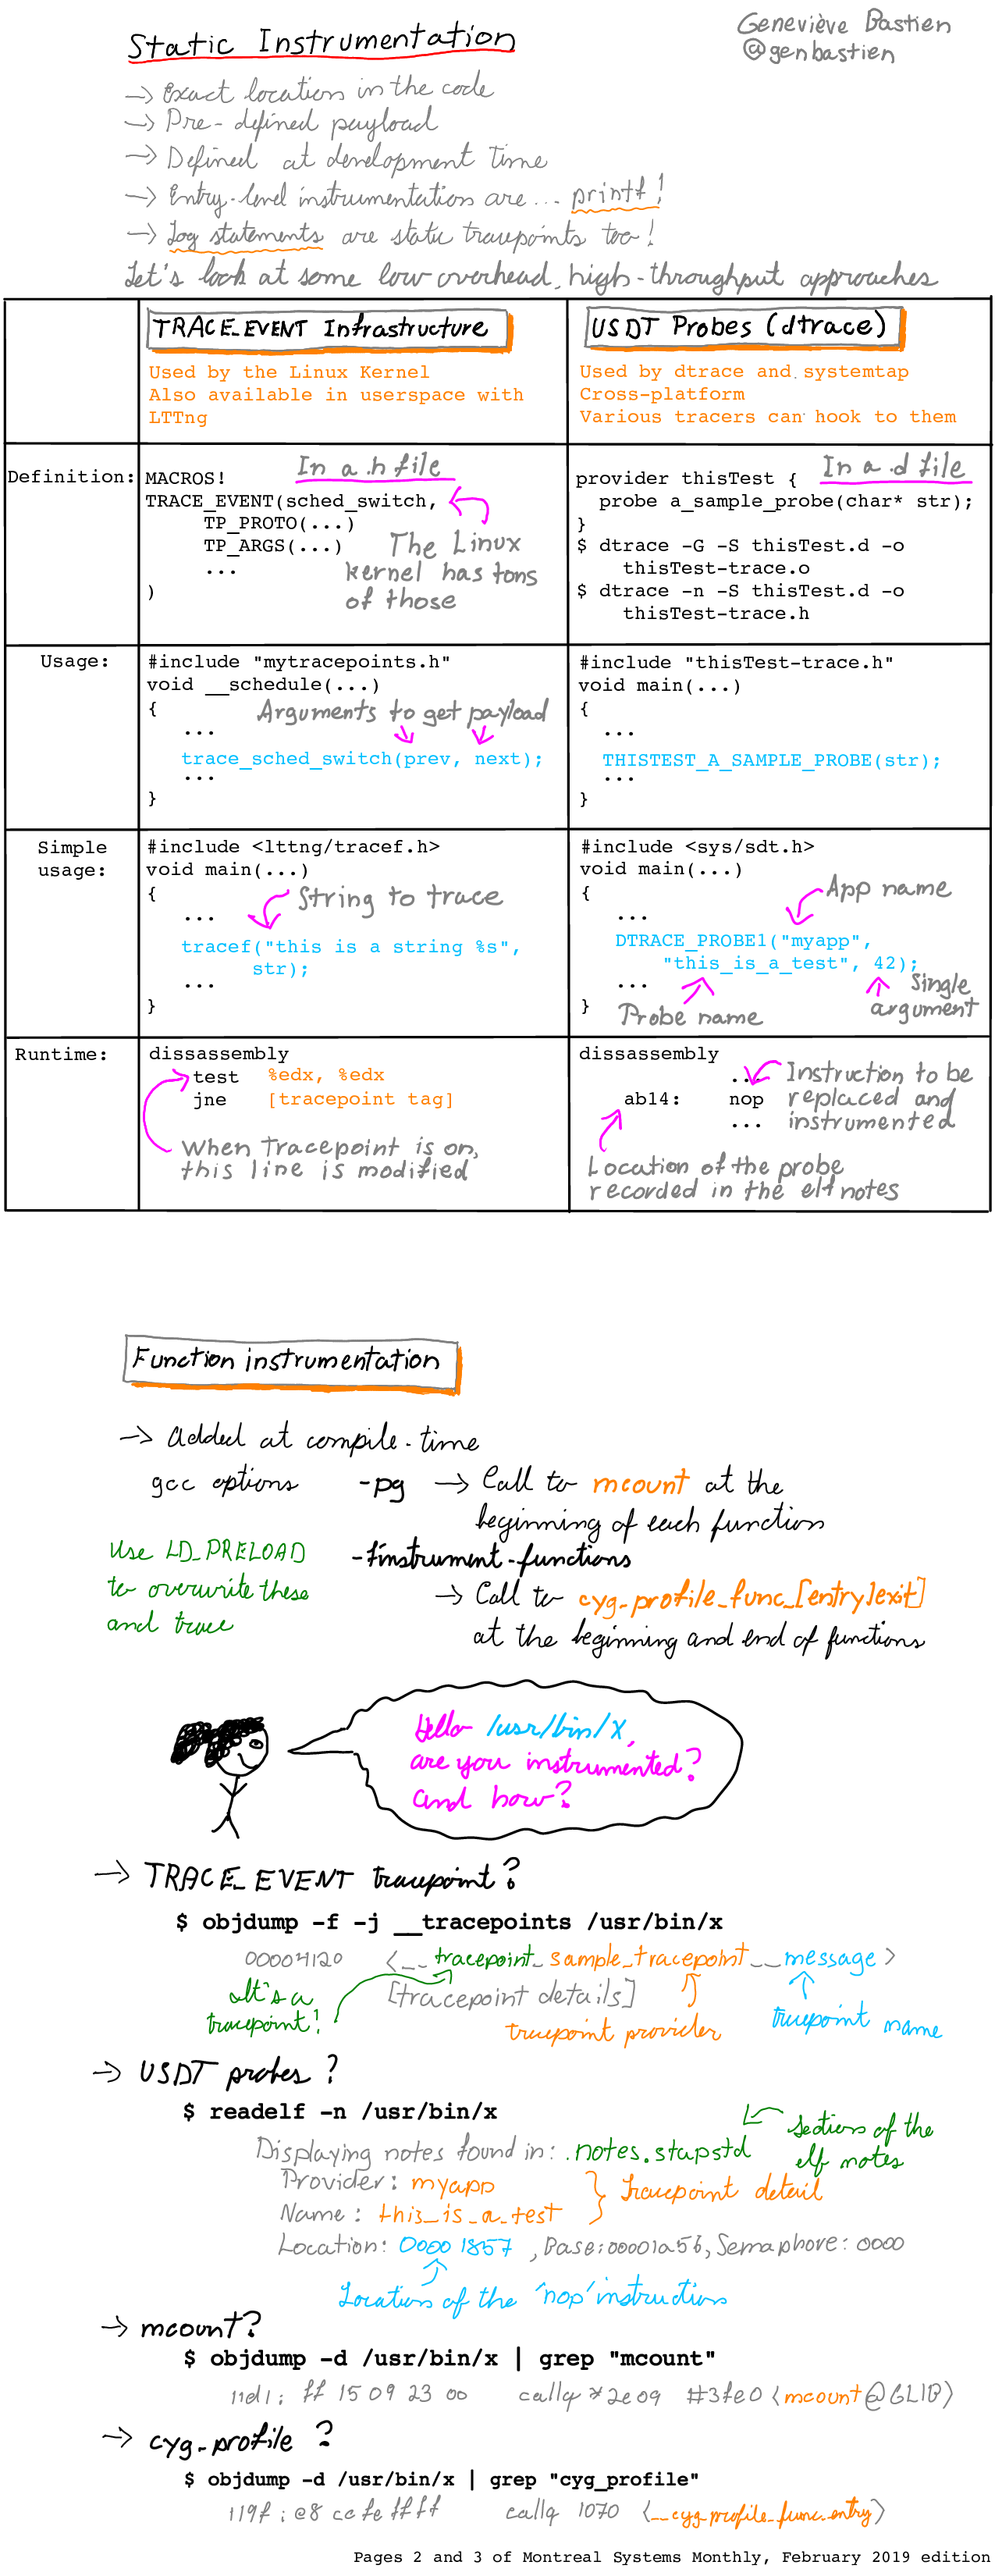 Geneviève Bastien
@genbastien
Static Instrumentation
→ Exact location in the code
→ Pre-defined payload
→ Defined at development time
→ Entry-level instrumentation are... printf!
→ Log statements are static tracepoints too!
Let's look at some low overhead, high-throughput approaches
TRACE_EVENT Infrastructure
Used by the Linux Kernel
Also available in userspace with
LTTng
USDT Probes (dtrace)
Used by dtrace and systemtap
Cross-platform
Various tracers can hook to them
Definition:
In a .h file
MACROS!
TRACE_EVENT(sched_switch,
TP_PROTO(...)
TP_ARGS(...)
...
)
The Linux
kernel has tons
of those
In a .d file
provider thisTest {
probe a_sample_probe(char* str);
}
$ dtrace -G -S thisTest.d -o
thisTest-trace.o
$ dtrace -n -S thisTest.d -o
thisTest-trace.h
Usage:
#include "mytracepoints.h"
void __schedule(...)
{
Arguments to get payload
...
trace_sched_switch(prev, next);
...
}
#include "thisTest-trace.h"
void main(...)
{
...
THISTEST_A_SAMPLE_PROBE(str);
...
}
Simple
usage:
#include <lttng/tracef.h>
void main(...)
{
String to trace
...
tracef("this is a string %s",
str);
...
}
#include <sys/sdt.h>
void main(...)
{
App name
...
DTRACE_PROBE1("myapp",
"this_is_a_test", 42);
...
}
Probe name
Single
argument
Runtime:
dissassembly
test %edx, %edx
jne [tracepoint tag]
When Tracepoint is on,
this line is modified
dissassembly
...
ab14: nop
...
Instruction to be
replaced and
instrumented
Location of the probe
recorded in the elf notes
Function instrumentation
→ Added at compile-time
gcc options -pg → Call to mcount at the
beginning of each function
Use LD_PRELOAD
to overwrite these
and trace
-finstrument-functions
→ Call to cyg_profile_func_[entry|exit]
at the beginning and end of functions
Hello /usr/bin/X,
are you instrumented?
and how?
→ TRACE_EVENT tracepoint?
$ objdump -f -j __tracepoints /usr/bin/x
00004120 <__tracepoint_sample_tracepoint__message>
[tracepoint details]
It's a
tracepoint!
tracepoint provider
tracepoint name
→ USDT probes?
$ readelf -n /usr/bin/x
Displaying notes found in: .notes.stapstd
section of the
elf notes
Provider: myapp
Name: this_is_a_test
Tracepoint detail
Location: 00001857, Base:00001a5b, Semaphore: 0000
Location of the 'nop' instruction
→ mcount?
$ objdump -d /usr/bin/x | grep "mcount"
11d1: ff 15 09 23 00 callq *2e09 #3fe0 <mcount@GLIB>
→ cyg_profile ?
$ objdump -d /usr/bin/x | grep "cyg_profile"
119f: e8 cc fe ff ff callq 1070 <__cyg_profile_func_entry>
Pages 2 and 3 of Montreal Systems Monthly, February 2019 edition